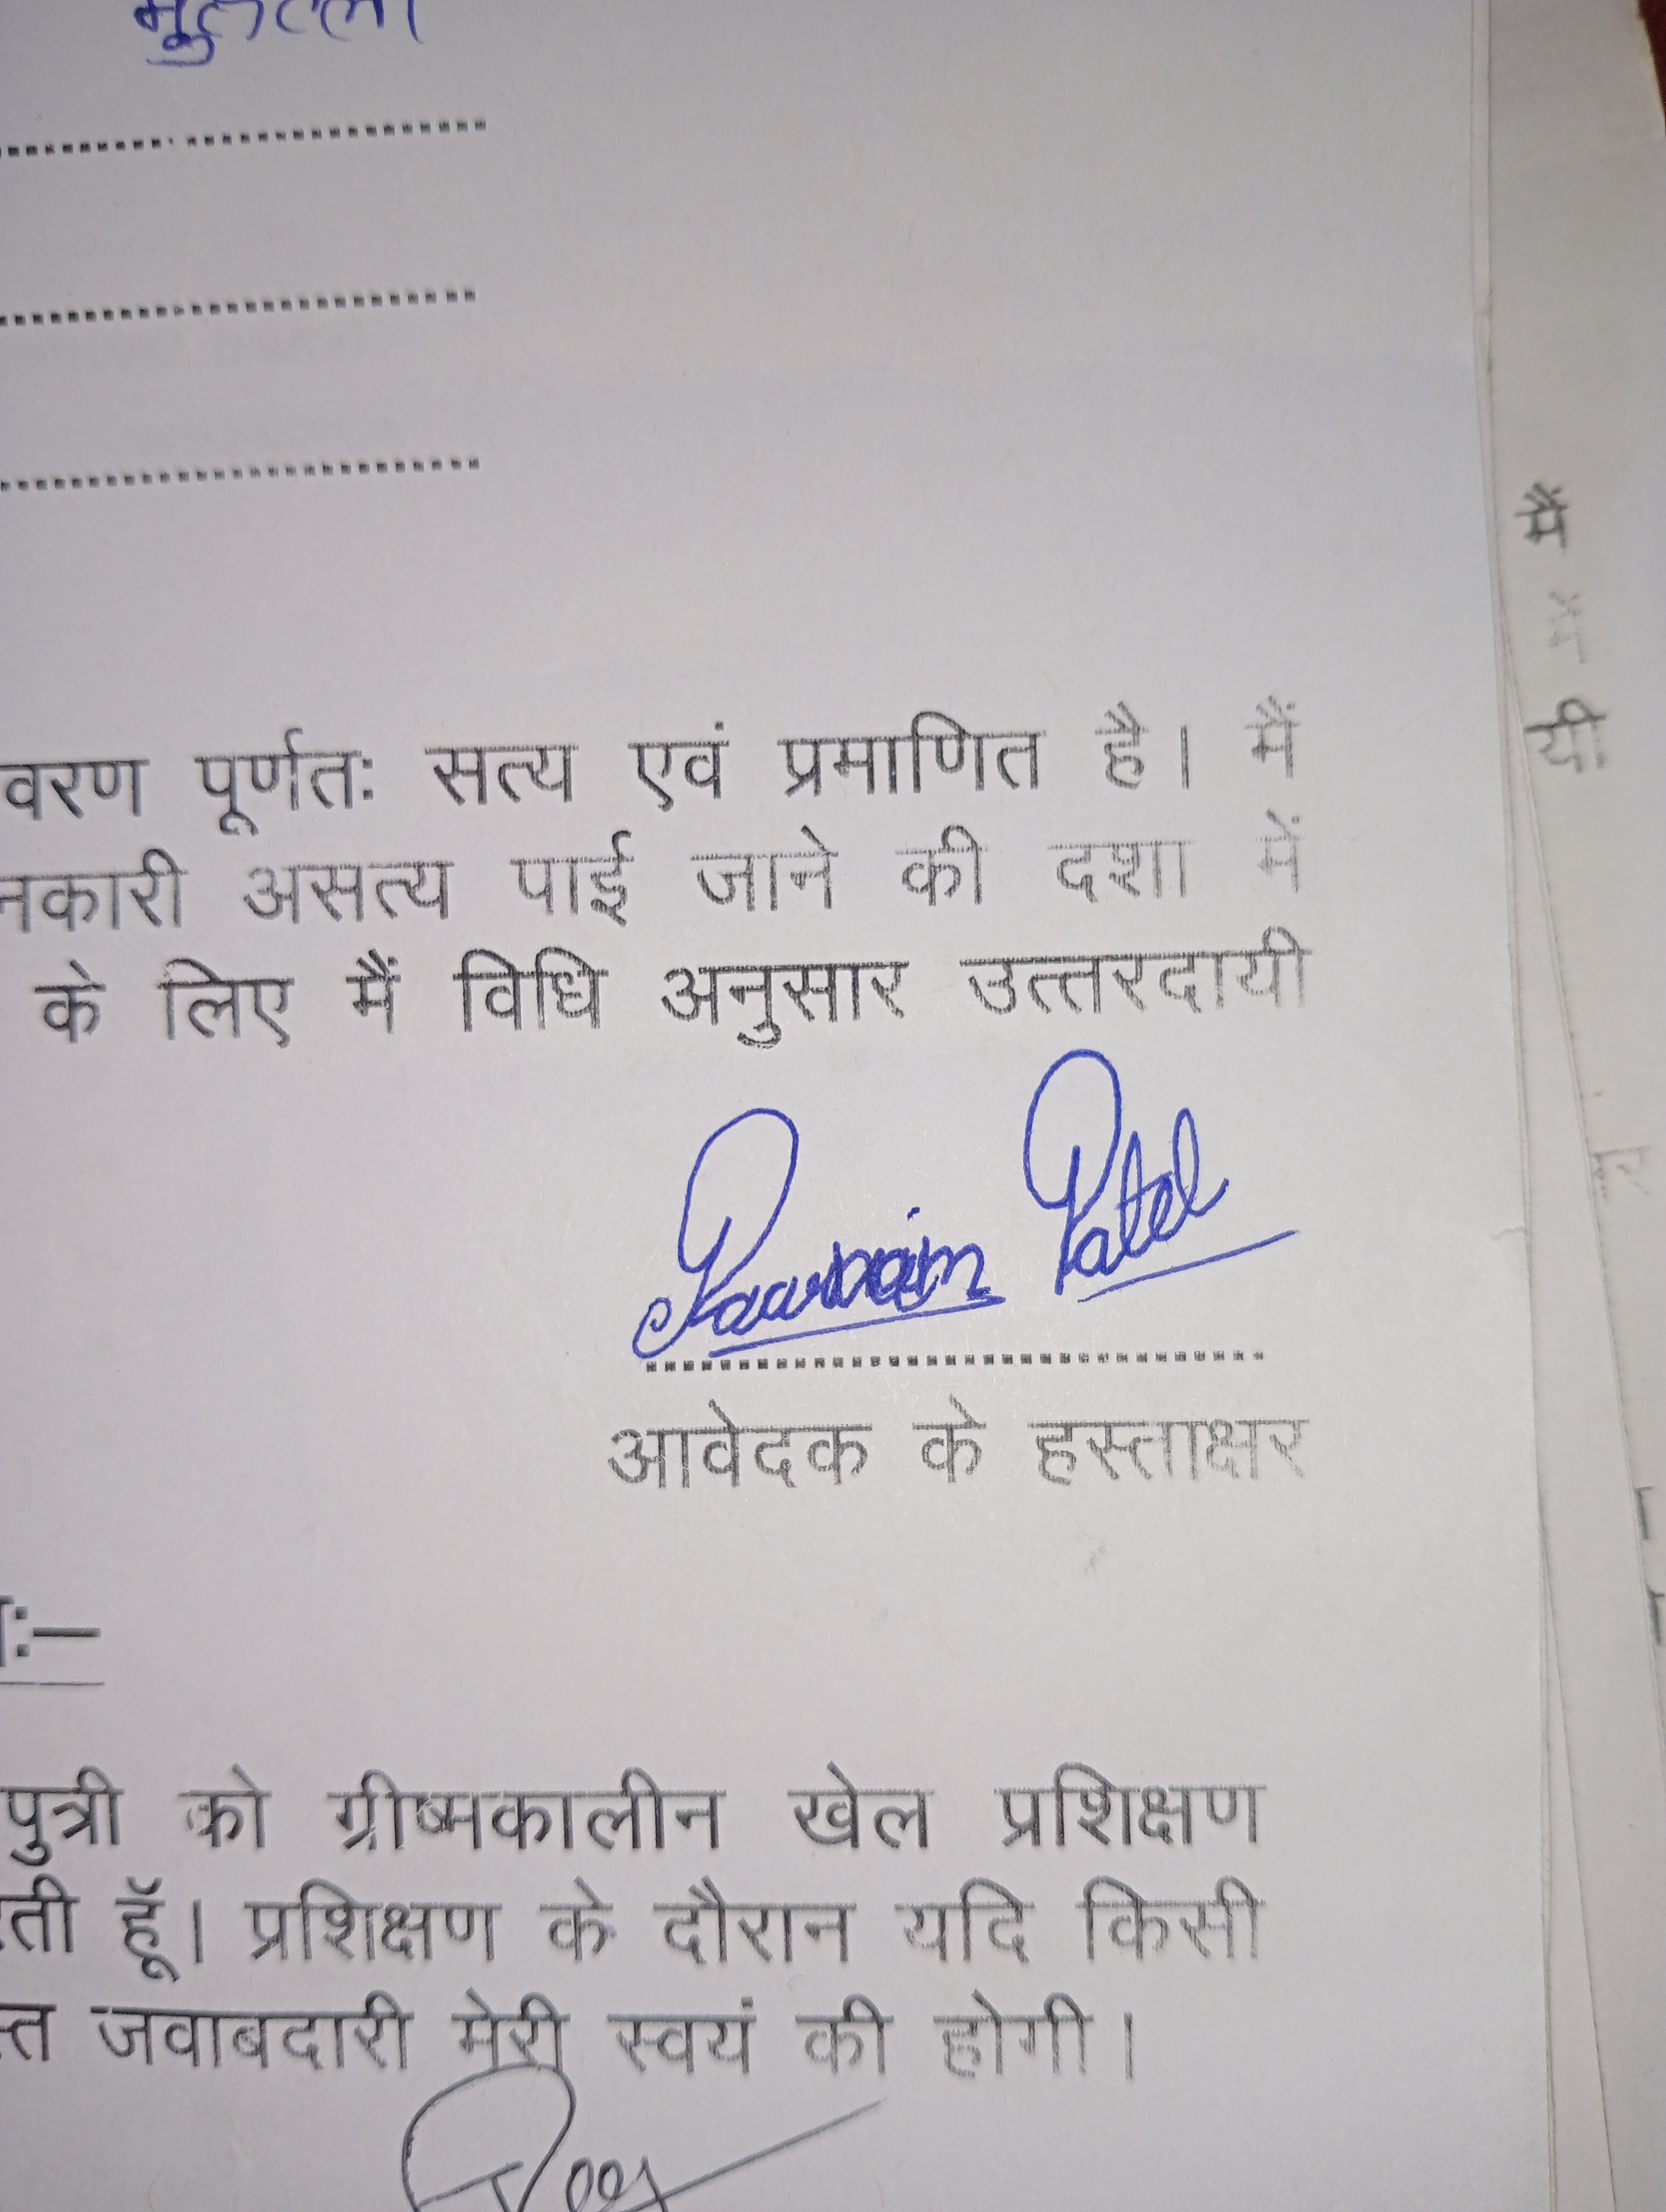 वरण पूर्णतः सत्य एवं प्रमाणित है। मैं
नकारी असत्य पाई जाने की दशा में
के लिए मैं विधि अनुसार उत्तरदायी
Patel
आवेदक के हस्ताक्षर
:—
पुत्री को ग्रीष्मकालीन खेल प्रशिक्षण
ती हूॅ। प्रशिक्षण के दौरान यदि किसी
स्त जवाबदारी मेरी स्वयं की होगी।
मैं